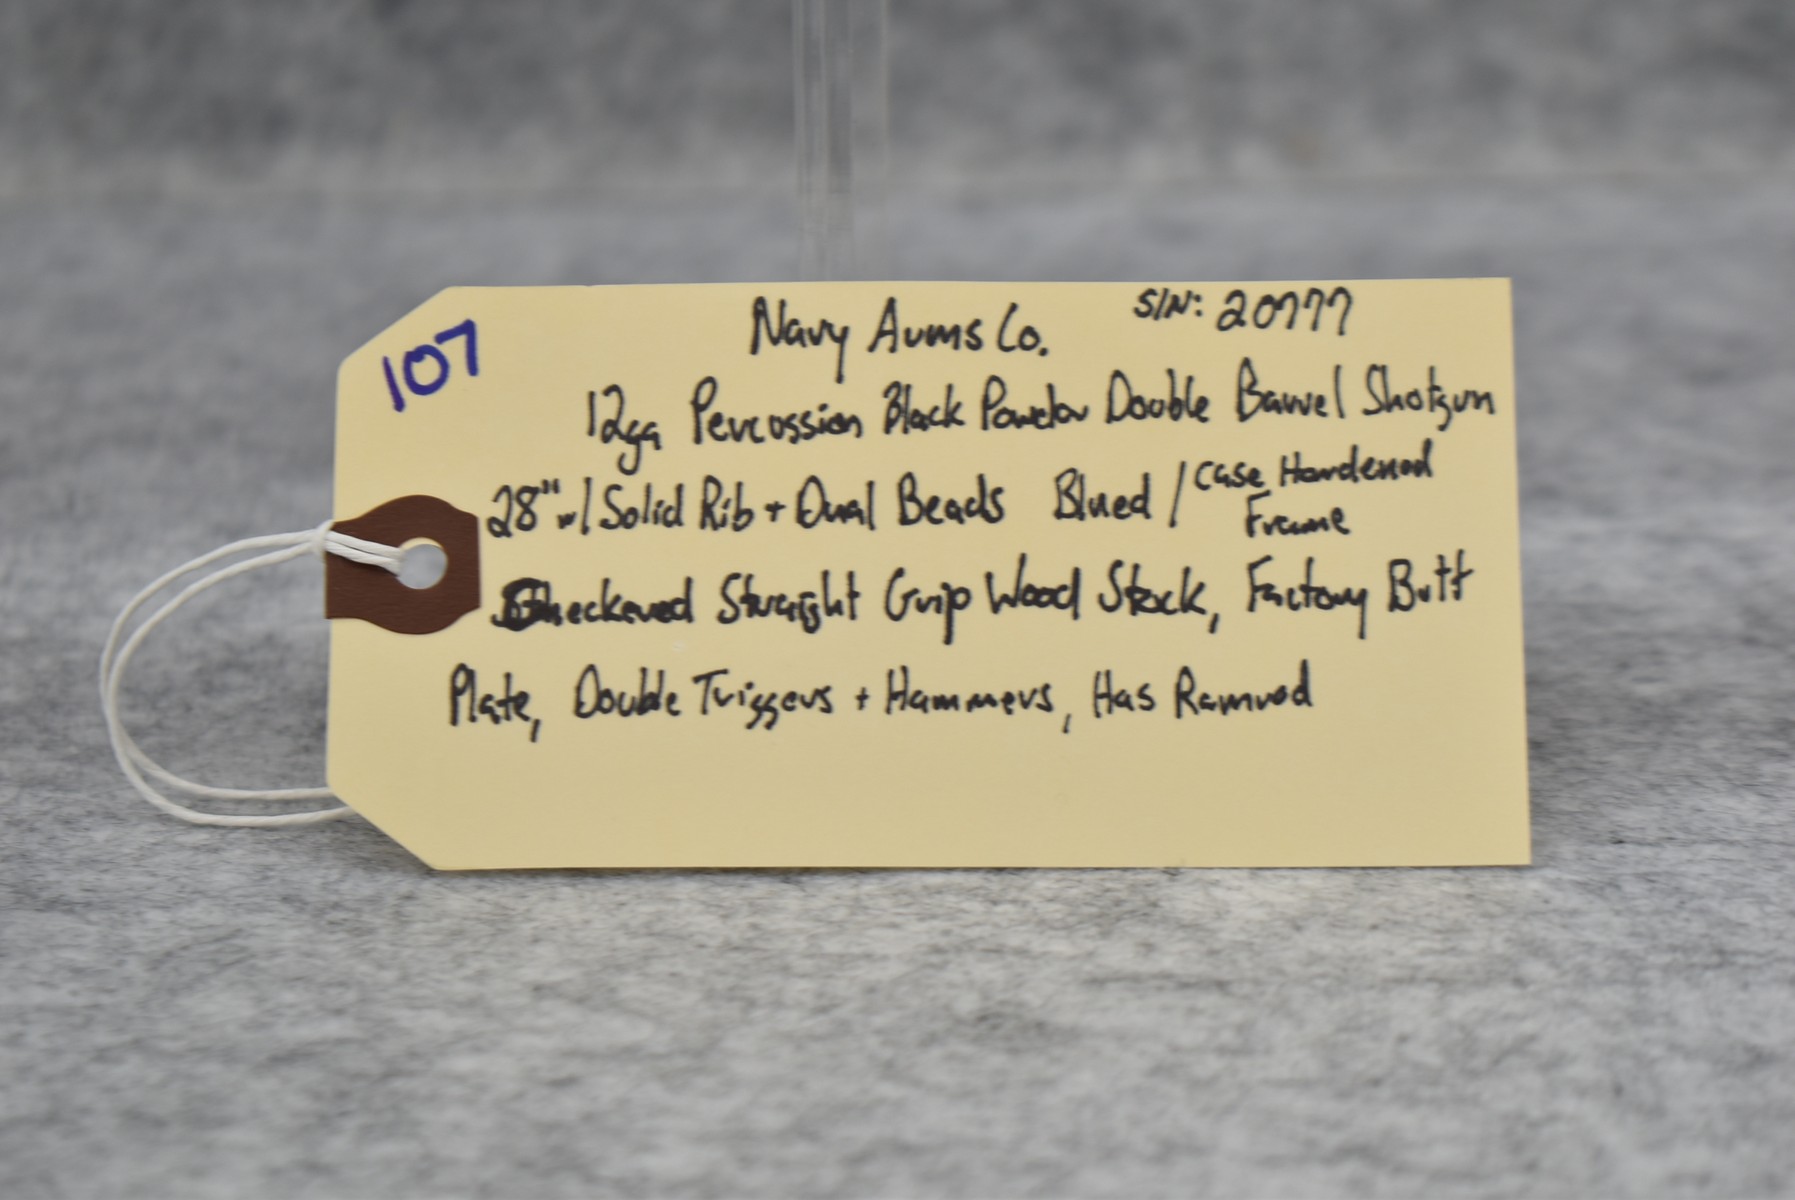 107
Navy Arms Co. S/N: 20777
12ga Percussion Black Powder Double Barrel Shotgun
28" w/ Solid Rib + Dual Beads Blued / Case Hardened
Frame
Checkered Straight Grip Wood Stock, Factory Butt
Plate, Double Triggers + Hammers, Has Ramrod